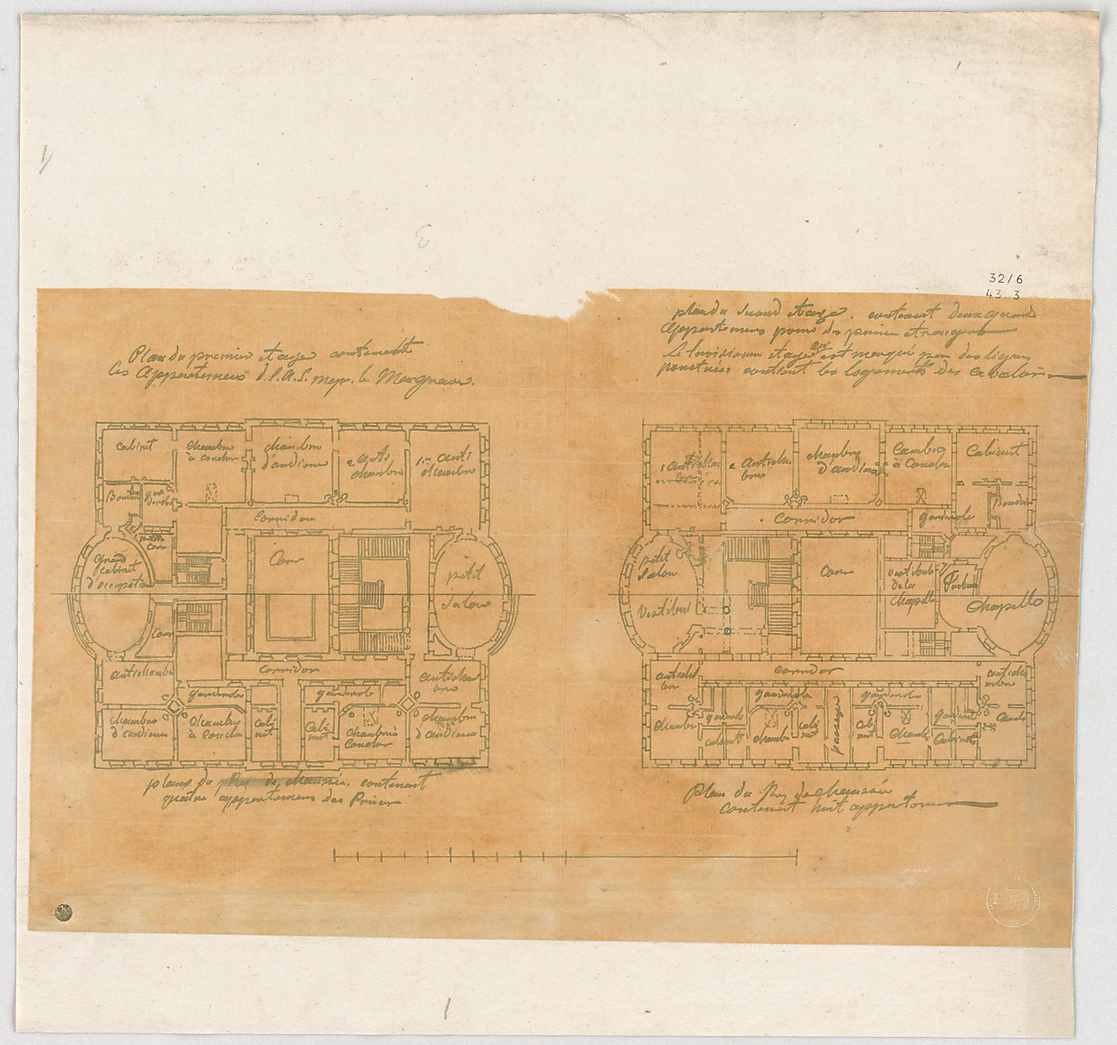 32/6
43.3
plan du second etage. contenent deux grands
appartemens pour des princes etrangers
le troisieme etage est marquéz par des lignes
ponctuées contient les logements des cavaliers
Plan du premier étage contenent
les Appartemens d. S. A. S. msgr. le Margrave.
cabinet
chambre
à coucher
chambre
d'audience
2 anti
chambre
1re anti
chambre
Boudoir
garderobe
corridor
petite
Cour
grand
cabinet
d'occupation
Cour
petit
salon
Cour
antichambre
corridor
antichambre
garderobe
garderobe
chambre
d'audience
chambre
à coucher
cabinet
cabinet
chambre à
coucher
chambre
d'audience
1 antichambre
2 antichambre
chambre
d'audience
Cambre
à Coucher
Cabinet
Boudoir
corridor
garderobe
petit
Salon
Vestibul
Cour
vestibule
de la
Chapelle
Chapelle
antichambre
corridor
antichambre
garderobe
garderobe
chambre
garderobe
cabinet
chambre
cabinet
passage
cabinet
chambre
garderobe
Cabinet
chambre
plans du Rez de chaussée, contenent
quatre appartemens des Princes
Plan du Rez de chaussée
contenent huit appartemens